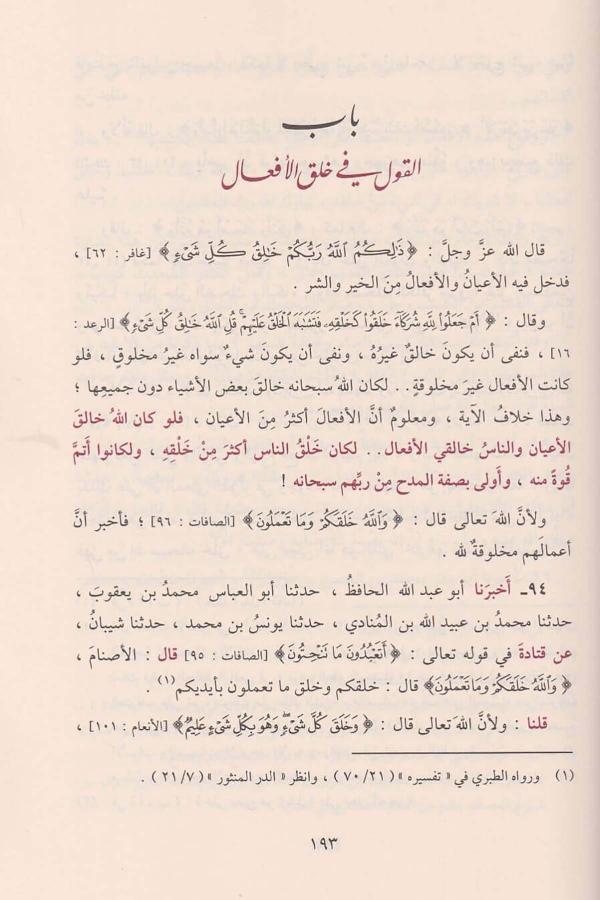 باب
القول في خلق الأفعال
قال الله عزَّ وجلَّ : ﴿ ذَٰلِكُمُ ٱللَّهُ رَبُّكُمْ خَٰلِقُ كُلِّ شَىْءٍ ﴾ [غافر : ٦٢] ،
فدخل فيه الأعيانُ والأفعالُ مِنَ الخير والشر .
وقال : ﴿ أَمْ جَعَلُوا۟ لِلَّهِ شُرَكَآءَ خَلَقُوا۟ كَخَلْقِهِۦ فَتَشَٰبَهَ ٱلْخَلْقُ عَلَيْهِمْ ۚ قُلِ ٱللَّهُ خَٰلِقُ كُلِّ شَىْءٍ ﴾ [الرعد :
١٦] ، فنفى أن يكونَ خالقٌ غيرُهُ ، ونفى أن يكونَ شيءٌ سواه غيرُ مخلوقٍ ، فلو
كانت الأفعال غيرَ مخلوقةٍ . . لكان اللهُ سبحانه خالقَ بعض الأشياء دون جميعِها ؛
وهذا خلافُ الآية ، ومعلومٌ أنَّ الأفعالَ أكثرُ مِنَ الأعيان ، فلو كان اللهُ خالقَ
الأعيان والناسُ خالقي الأفعال . . لكان خَلْقُ الناس أكثرَ مِنْ خَلْقِهِ ، ولكانوا أتمَّ
قُوةً منه ، وأَولى بصفة المدح مِنْ ربِّهم سبحانه !
ولأنَّ اللهَ تعالى قال : ﴿ وَٱللَّهُ خَلَقَكُمْ وَمَا تَعْمَلُونَ ﴾ [الصافات : ٩٦] ؛ فأخبر أنَّ
أعمالَهم مخلوقةٌ لله .
٩٤ـ أَخبرَنا أبو عبد الله الحافظُ ، حدثنا أبو العباس محمدُ بن يعقوبَ ،
حدثنا محمدُ بن عبيد الله بن المُنادي ، حدثنا يونسُ بن محمد ، حدثنا شيبانُ ،
عن قتادةَ في قوله تعالى : ﴿ أَتَعْبُدُونَ مَا تَنْحِتُونَ ﴾ [الصافات : ٩٥] قال : الأصنامَ ،
﴿ وَٱللَّهُ خَلَقَكُمْ وَمَا تَعْمَلُونَ ﴾ قال : خلقكم وخلق ما تعملون بأيديكم(١) .
قلنا : ولأنَّ اللهَ تعالى قال : ﴿ وَخَلَقَ كُلَّ شَىْءٍ ۖ وَهُوَ بِكُلِّ شَىْءٍ عَلِيمٌ ﴾ [الأنعام : ١٠١] ،
(١) ورواه الطبري في « تفسيره » (٧٠/٢١) ، وانظر « الدر المنثور » (٢١/٧) .
١٩٣